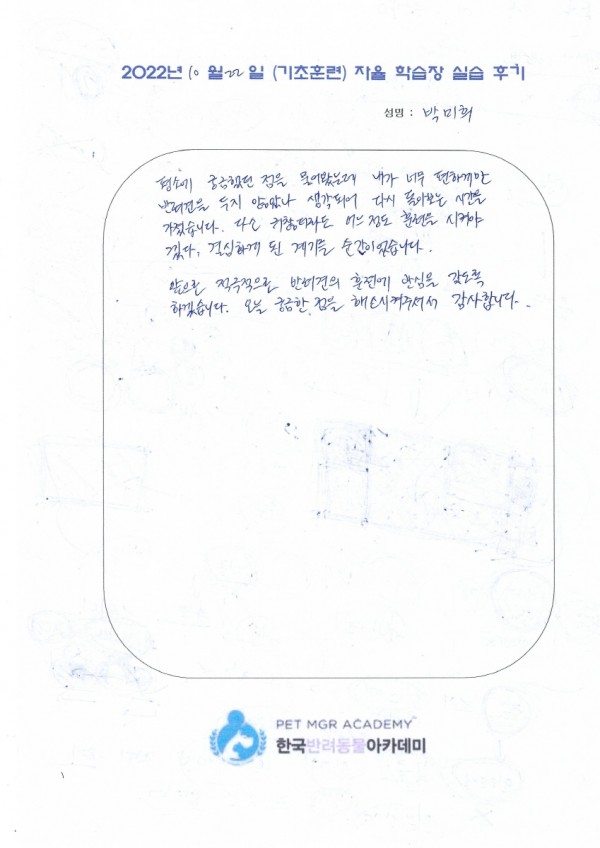 2022년 10 월 22 일 (기초훈련) 자율 학습장 실습 후기
성명 : 박미희
평소에 궁금했던 점을 물어봤는데 내가 너무 편하게만
반려견을 두지 않았나 생각되어 다시 돌아보는 시간을
가졌습니다. 다소 귀찮더라도 어느정도 훈련을 시켜야
겠다. 결심하게 된 계기를 순간이였습니다.
앞으로 적극적으로 반려견의 훈련에 관심을 갖도록
하겠습니다. 오늘 궁금한 점을 해소시켜주셔서 감사합니다.
PET MGR ACADEMY
한국반려동물아카데미